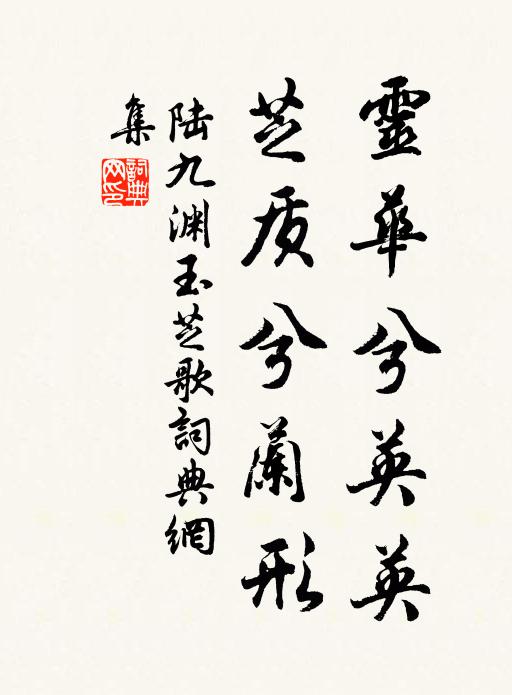 靈華兮英英
芝质兮蘭形
陆九渊玉芝歌詞典網
集
詞典网印